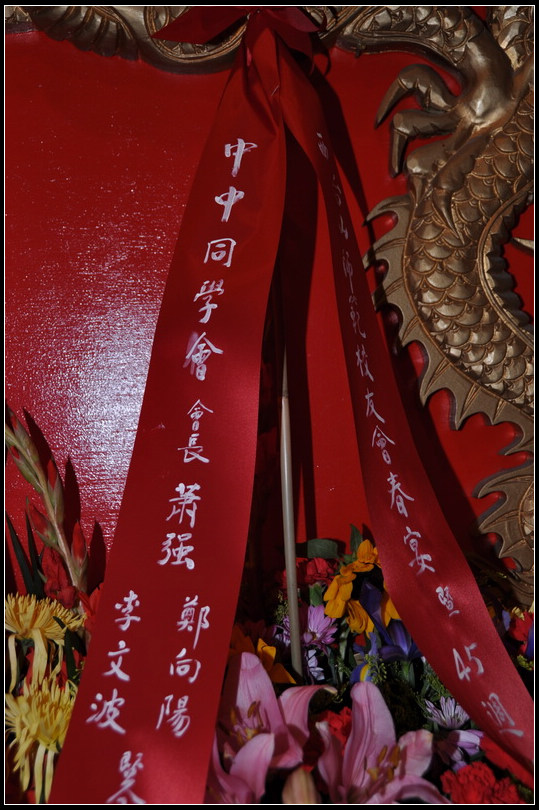 中山師範校友會春宴暨45週
中中同學會 會長 蕭强 鄭向陽
李文波